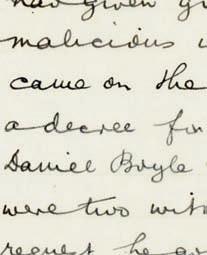 had given
malicious
came on the
a decree for
Daniel Boyle
were two wit
request he